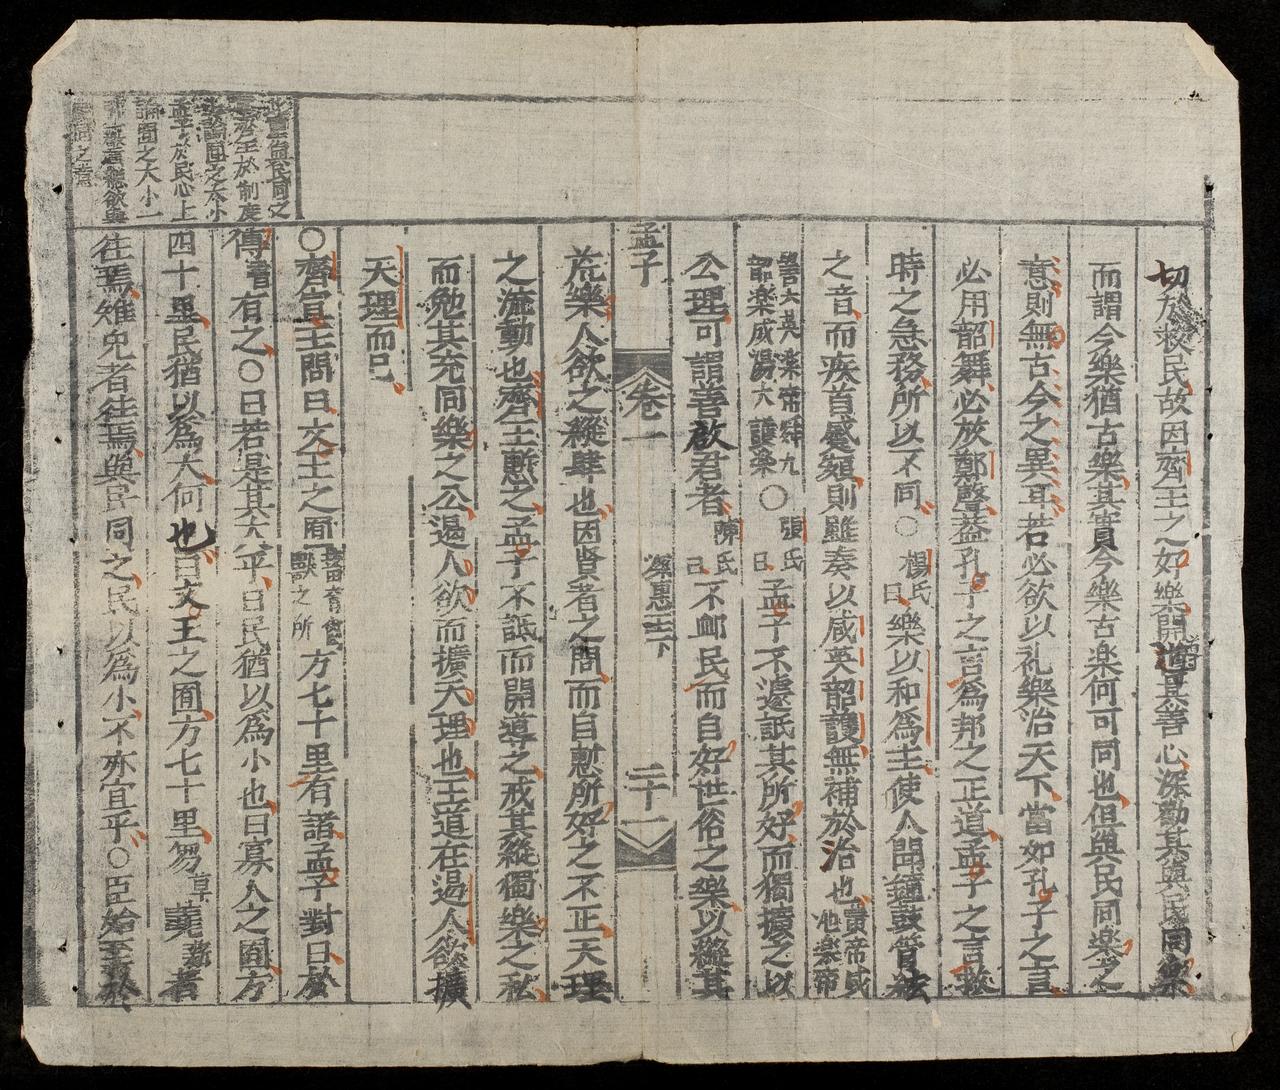 切於救民故因齊王之好樂開導其善心深勸其與民同樂
而謂今樂猶古樂其實今樂古楽何可同也但與民同楽之
意則無古今之異耳若必欲以礼樂治天下當如孔子之言
必用韶舞必放鄭聲葢孔子之言為邦之正道孟子之言救
時之急務所以不同○楊氏曰樂以和爲主使人聞鐘鼓管弦
之音而疾首蹙頞則雖奏以咸英韶頀無補於治也黄帝咸池樂帝
嚳六英楽帝舜九韶楽成湯大頀樂○張氏曰孟子不遽詆其所好而獨擴之以
公理可謂善啟君者陳氏曰不卹民而自好世俗之樂以縱其
孟子 卷一 梁惠王下 二十一
荒樂人欲之縱肆也因賢者之問而自慙所好之不正天理
之流動也齊王慙之孟子不詆而開導之戒其縱獨樂之私
而勉其充同樂之公遏人欲而擴天理也王道在遏人欲擴
天理而已
○齊宣王問曰文王之囿蕃育鳥獸之所方七十里有諸孟子對曰於
傳有之○曰若是其大乎曰民猶以爲小也曰寡人之囿方
四十里民猶以為大何也曰文王之囿方七十里芻蕘者
往焉雉兔者往焉與民同之民以爲小不亦宜乎○臣始至於
與民同之
齊王於制度
論囿之大小
孟子於民心上
論囿之大小一